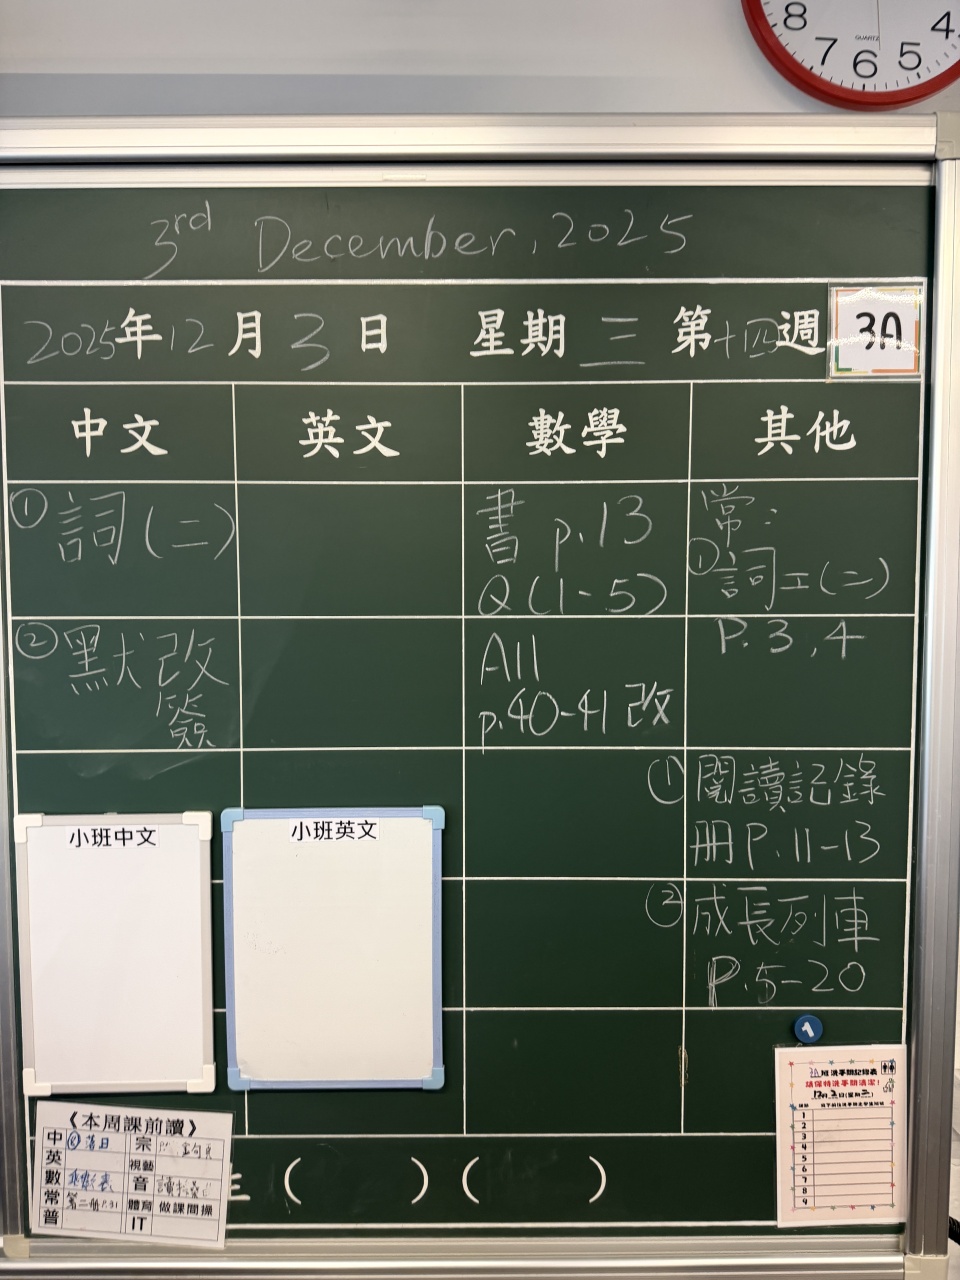 8 7 6 5 4
QUARTZ
3rd December, 2025
2025年12月3日 星期三 第十四週 3A
中文 英文 數學 其他
① 詞(二)
② 默改
簽
書 p.13
Q(1-5)
All
p.40-41 改
常:
① 詞工(二)
P.3,4
① 閱讀記錄
冊 P.11-13
② 成長列車
P.5-20
小班中文
小班英文
1
《本周課前讀》
中
英
數
常 第二冊P.31
普
宗
視藝
音
體育 做課間操
IT
( ) ( )
3A班洗手間記錄表
請保持洗手間清潔!
12月2日(星期二)
1
2
3
4
5
6
7
8
9